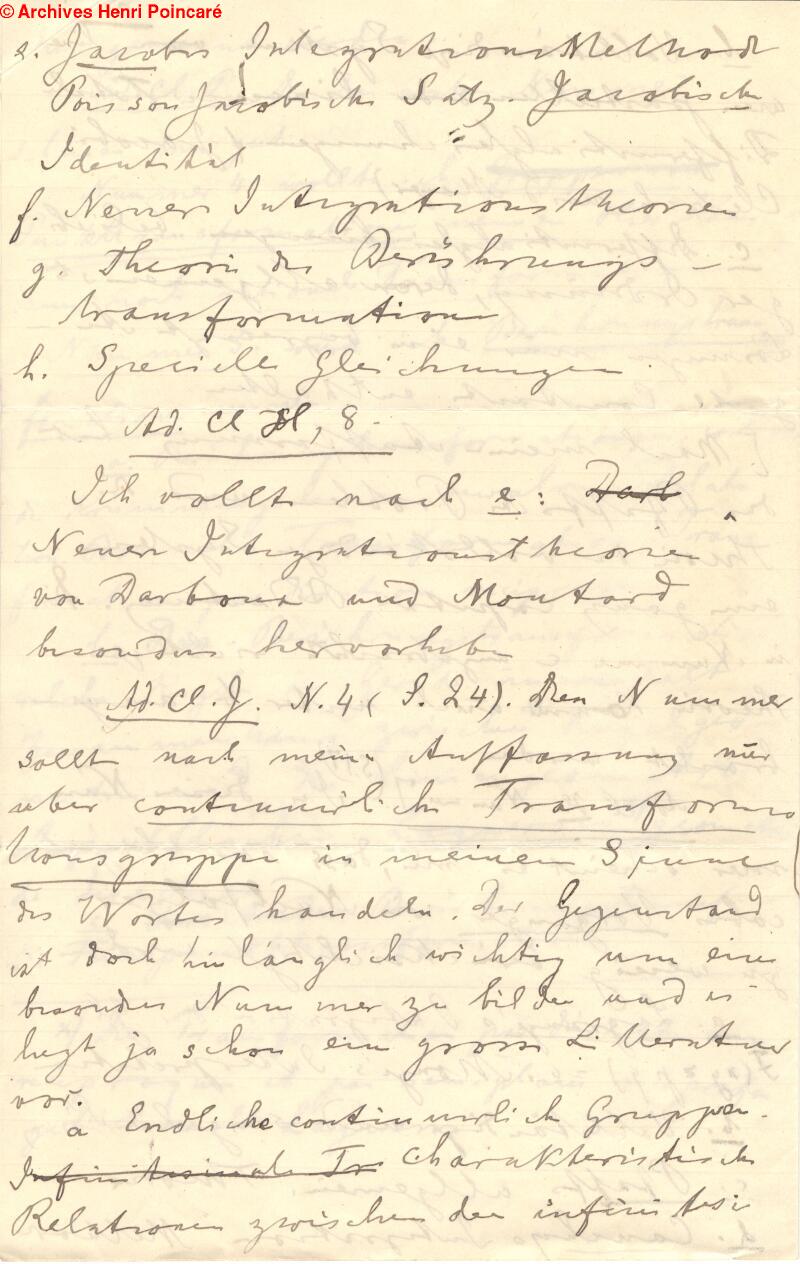 © Archives Henri Poincaré
e. Jacobis Integrations Methode
Poisson Jacobische Satz. Jacobische
Identität
f. Neuere Integrationstheorien
g. Theorie der Berührungs –
transformation
h. Specielle Gleichungen.
Ad. Cl H, 8.
Ich wollte nach e: Darb
Neuere Integrationstheorien
von Darboux und Moutard
besonders hervorheben
Ad. Cl. J. N. 4 (S. 24). Diese Nummer
sollte nach meiner Auffassung nur
über continuirliche Transforma
tionsgruppe in meinem Sinne
des Wortes handeln. Der Gegenstand
ist doch hinlänglich wichtig um eine
besondere Nummer zu bilden und es
liegt ja schon eine grosse Litteratur
vor.
a Endliche continuirliche Gruppen.
Infinitesimale Tr. Charakteristische
Relationen zwischen den infinitesi